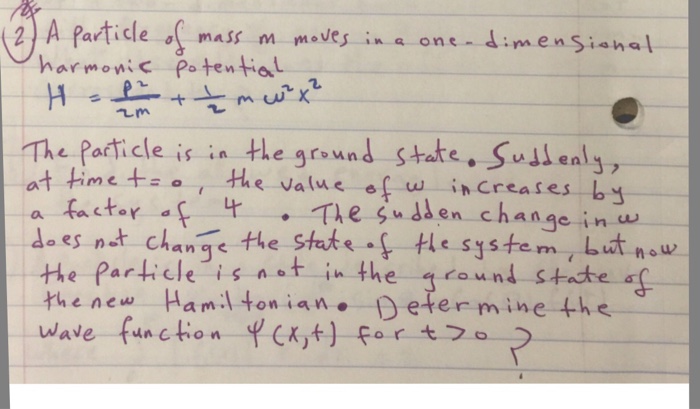 2) A particle of mass m moves in a one-dimensional
harmonic potential
H = p²/2m + 1/2 m ω² x²
The particle is in the ground state. Suddenly,
at time t=0, the value of ω increases by
a factor of 4. The sudden change in ω
does not change the state of the system, but now
the particle is not in the ground state of
the new Hamiltonian. Determine the
wave function Ψ(x,t) for t>0 ?